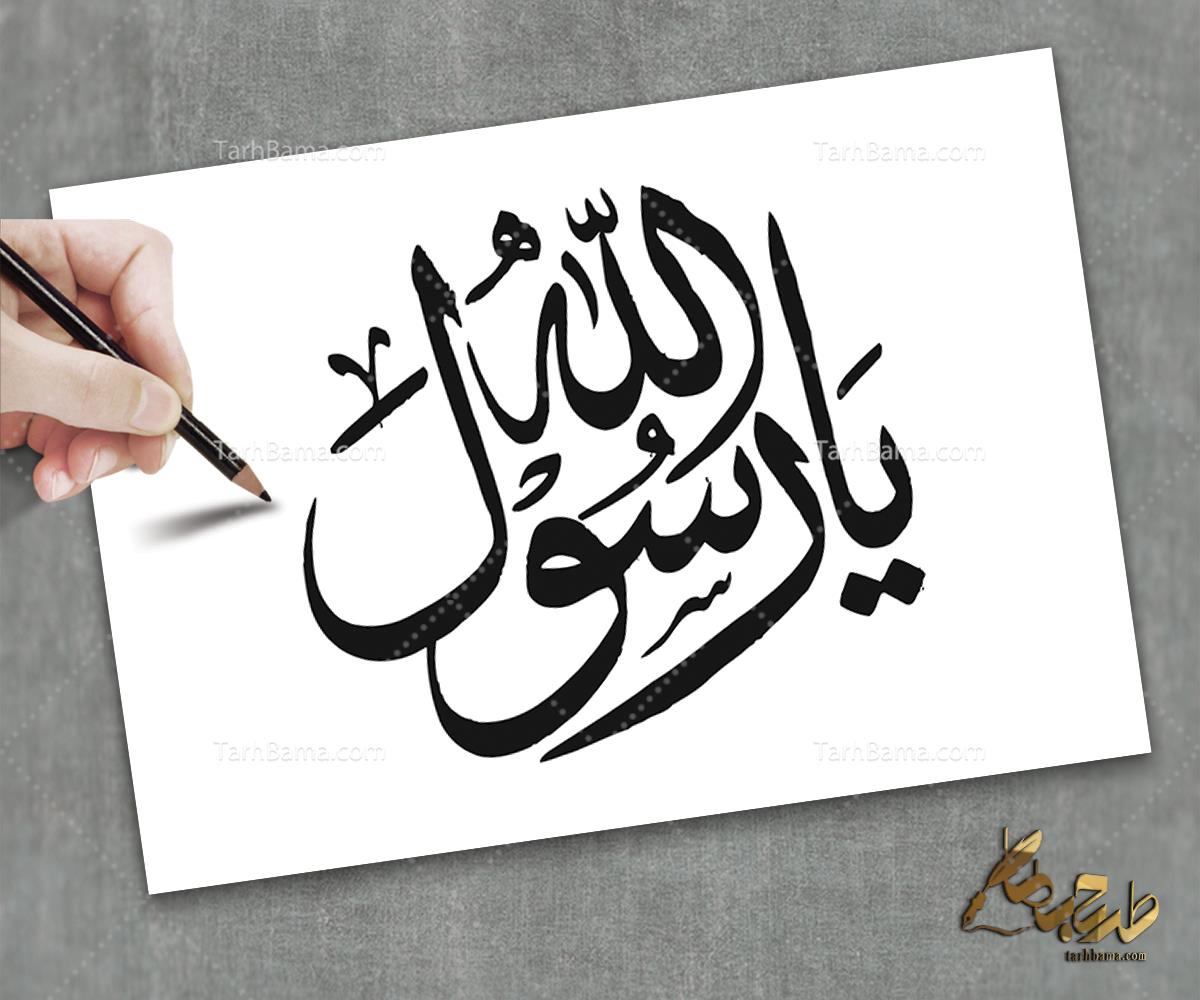 يا رسُولَ اللّهُ
TarhBama.com TarhBama.com
TarhBama.com TarhBama.com
TarhBama.com TarhBama.com
طرح باما
tarhbama.com